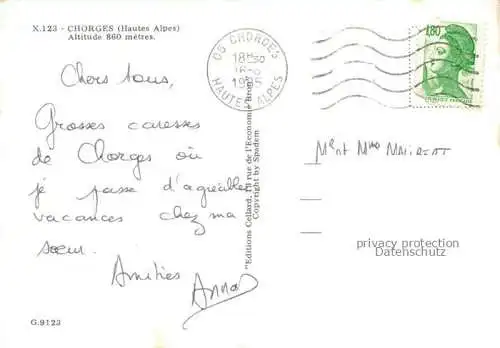 X.123 - CHORGES (Hautes Alpes)
Altitude 860 mètres.
05 CHORGES
18H30
1985
HAUTES ALPES
1,80
Chers tous,
Grosses caresses
de Chorges où
je passe d'agréables
vacances chez ma
sœur.
Amitiés
Anna
"Editions Cellard, rue de l'Economie Bron"
Copyright by Spadem
Mr et Mme
privacy protection
Datenschutz
G.9123